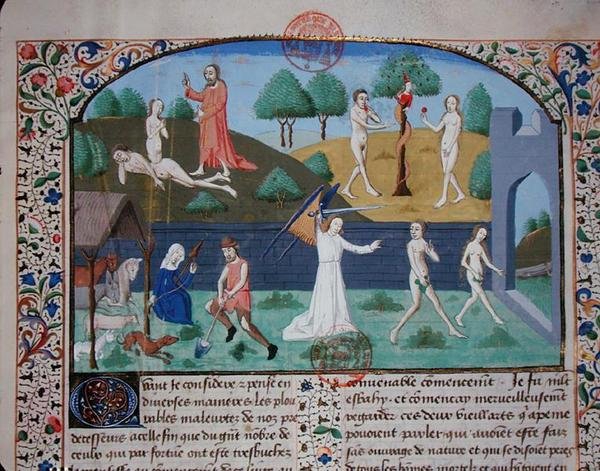 Quant ie considere & pense en
diverses manieres les plou
rables maleurtez de noz pre
decesseurs a celle fin que du grāt nōbre de
ceulx qui par fortūe ont este tresbuchez
convenable cōmencemēt. Je fu mlt
esbahy et cōmencay merveilleusemēt
regarder ces deux vieillars q̄ a peine
pouoient parler qui avoiēt este faiz
sās ouvrage de nature et qui se disoiēt peres
de tous les hōmes mortelz et qui